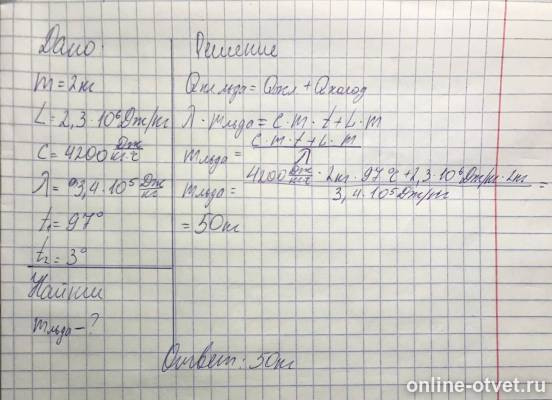 Дано:
m = 2кг
L = 2,3 · 10⁶ Дж/кг
c = 4200 Дж/кг·°С
λ = 3,4 · 10⁵ Дж/кг
t₁ = 97°
t₂ = 3°
Найти
mльда - ?
Решение
Qпл льда = Qкл + Qхолод
λ · mльда = c · m · t + L · m
mльда = c · m · t + L · m / λ
mльда = 4200 Дж/кг·°С · 2кг · 97°С + 2,3 · 10⁶ Дж/кг · 2кг / 3,4 · 10⁵ Дж/кг =
= 50кг
Ответ: 50кг
online-otvet.ru